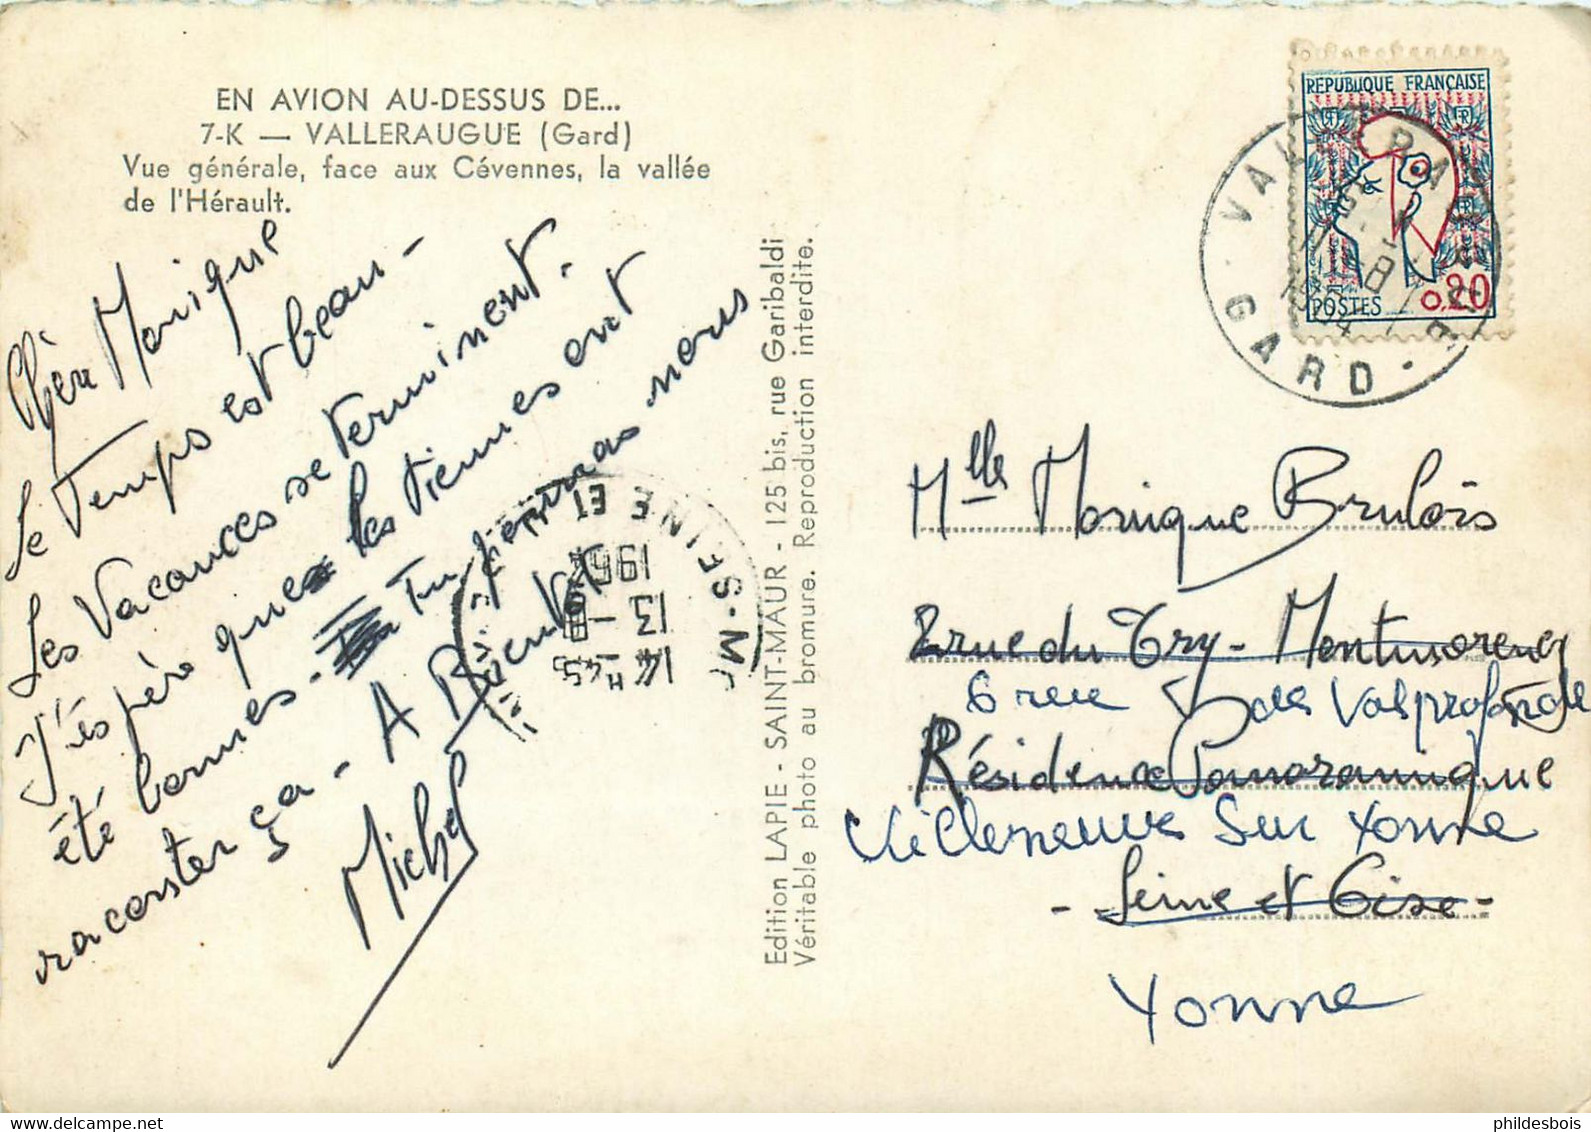 EN AVION AU-DESSUS DE...
7-K — VALLERAUGUE (Gard)
Vue générale, face aux Cévennes, la vallée
de l'Hérault.
Chère Monique
Le Temps est beau -
Les Vacances se terminent.
J'éspère que les tiennes ont
été bonnes. Tu
raconter ça - A Bientôt
nous
Michel
Edition LAPIE - SAINT-MAUR - 125 bis, rue Garibaldi
Véritable photo au bromure. Reproduction interdite.
SEINE ET
14 H 45
13 -8
REPUBLIQUE FRANÇAISE
POSTES 0.20
VALLERAUGUE
GARD
Mlle Monique Brulois
2 rue du Try - Montmorency
6 rue Valprofonde
Résidence Panoramique
Villeneuve Sur Yonne
- Seine et Oise -
Yonne
phildesbois